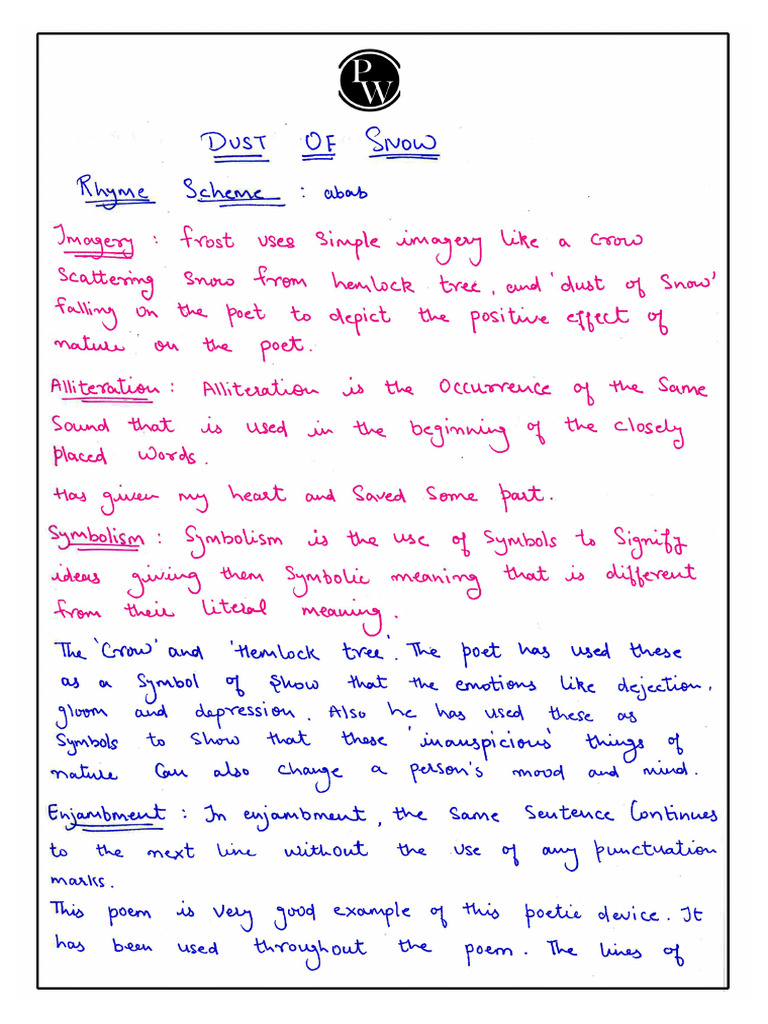 PW
DUST OF SNOW
Rhyme Scheme : abab
Imagery : frost uses simple imagery like a crow
scattering snow from hemlock tree, and 'dust of snow'
falling on the poet to depict the positive effect of
nature on the poet.
Alliteration : Alliteration is the occurrence of the same
sound that is used in the beginning of the closely
placed words.
Has given my heart and saved some part.
Symbolism : Symbolism is the use of symbols to signify
ideas giving them symbolic meaning that is different
from their literal meaning.
The 'Crow' and 'Hemlock tree'. The poet has used these
as a symbol of show that the emotions like dejection,
gloom and depression. Also he has used these as
symbols to show that these 'inauspicious' things of
nature can also change a person's mood and mind.
Enjambment : In enjambment, the same sentence continues
to the next line without the use of any punctuation
marks.
This poem is very good example of this poetic device. It
has been used throughout the poem. The lines of